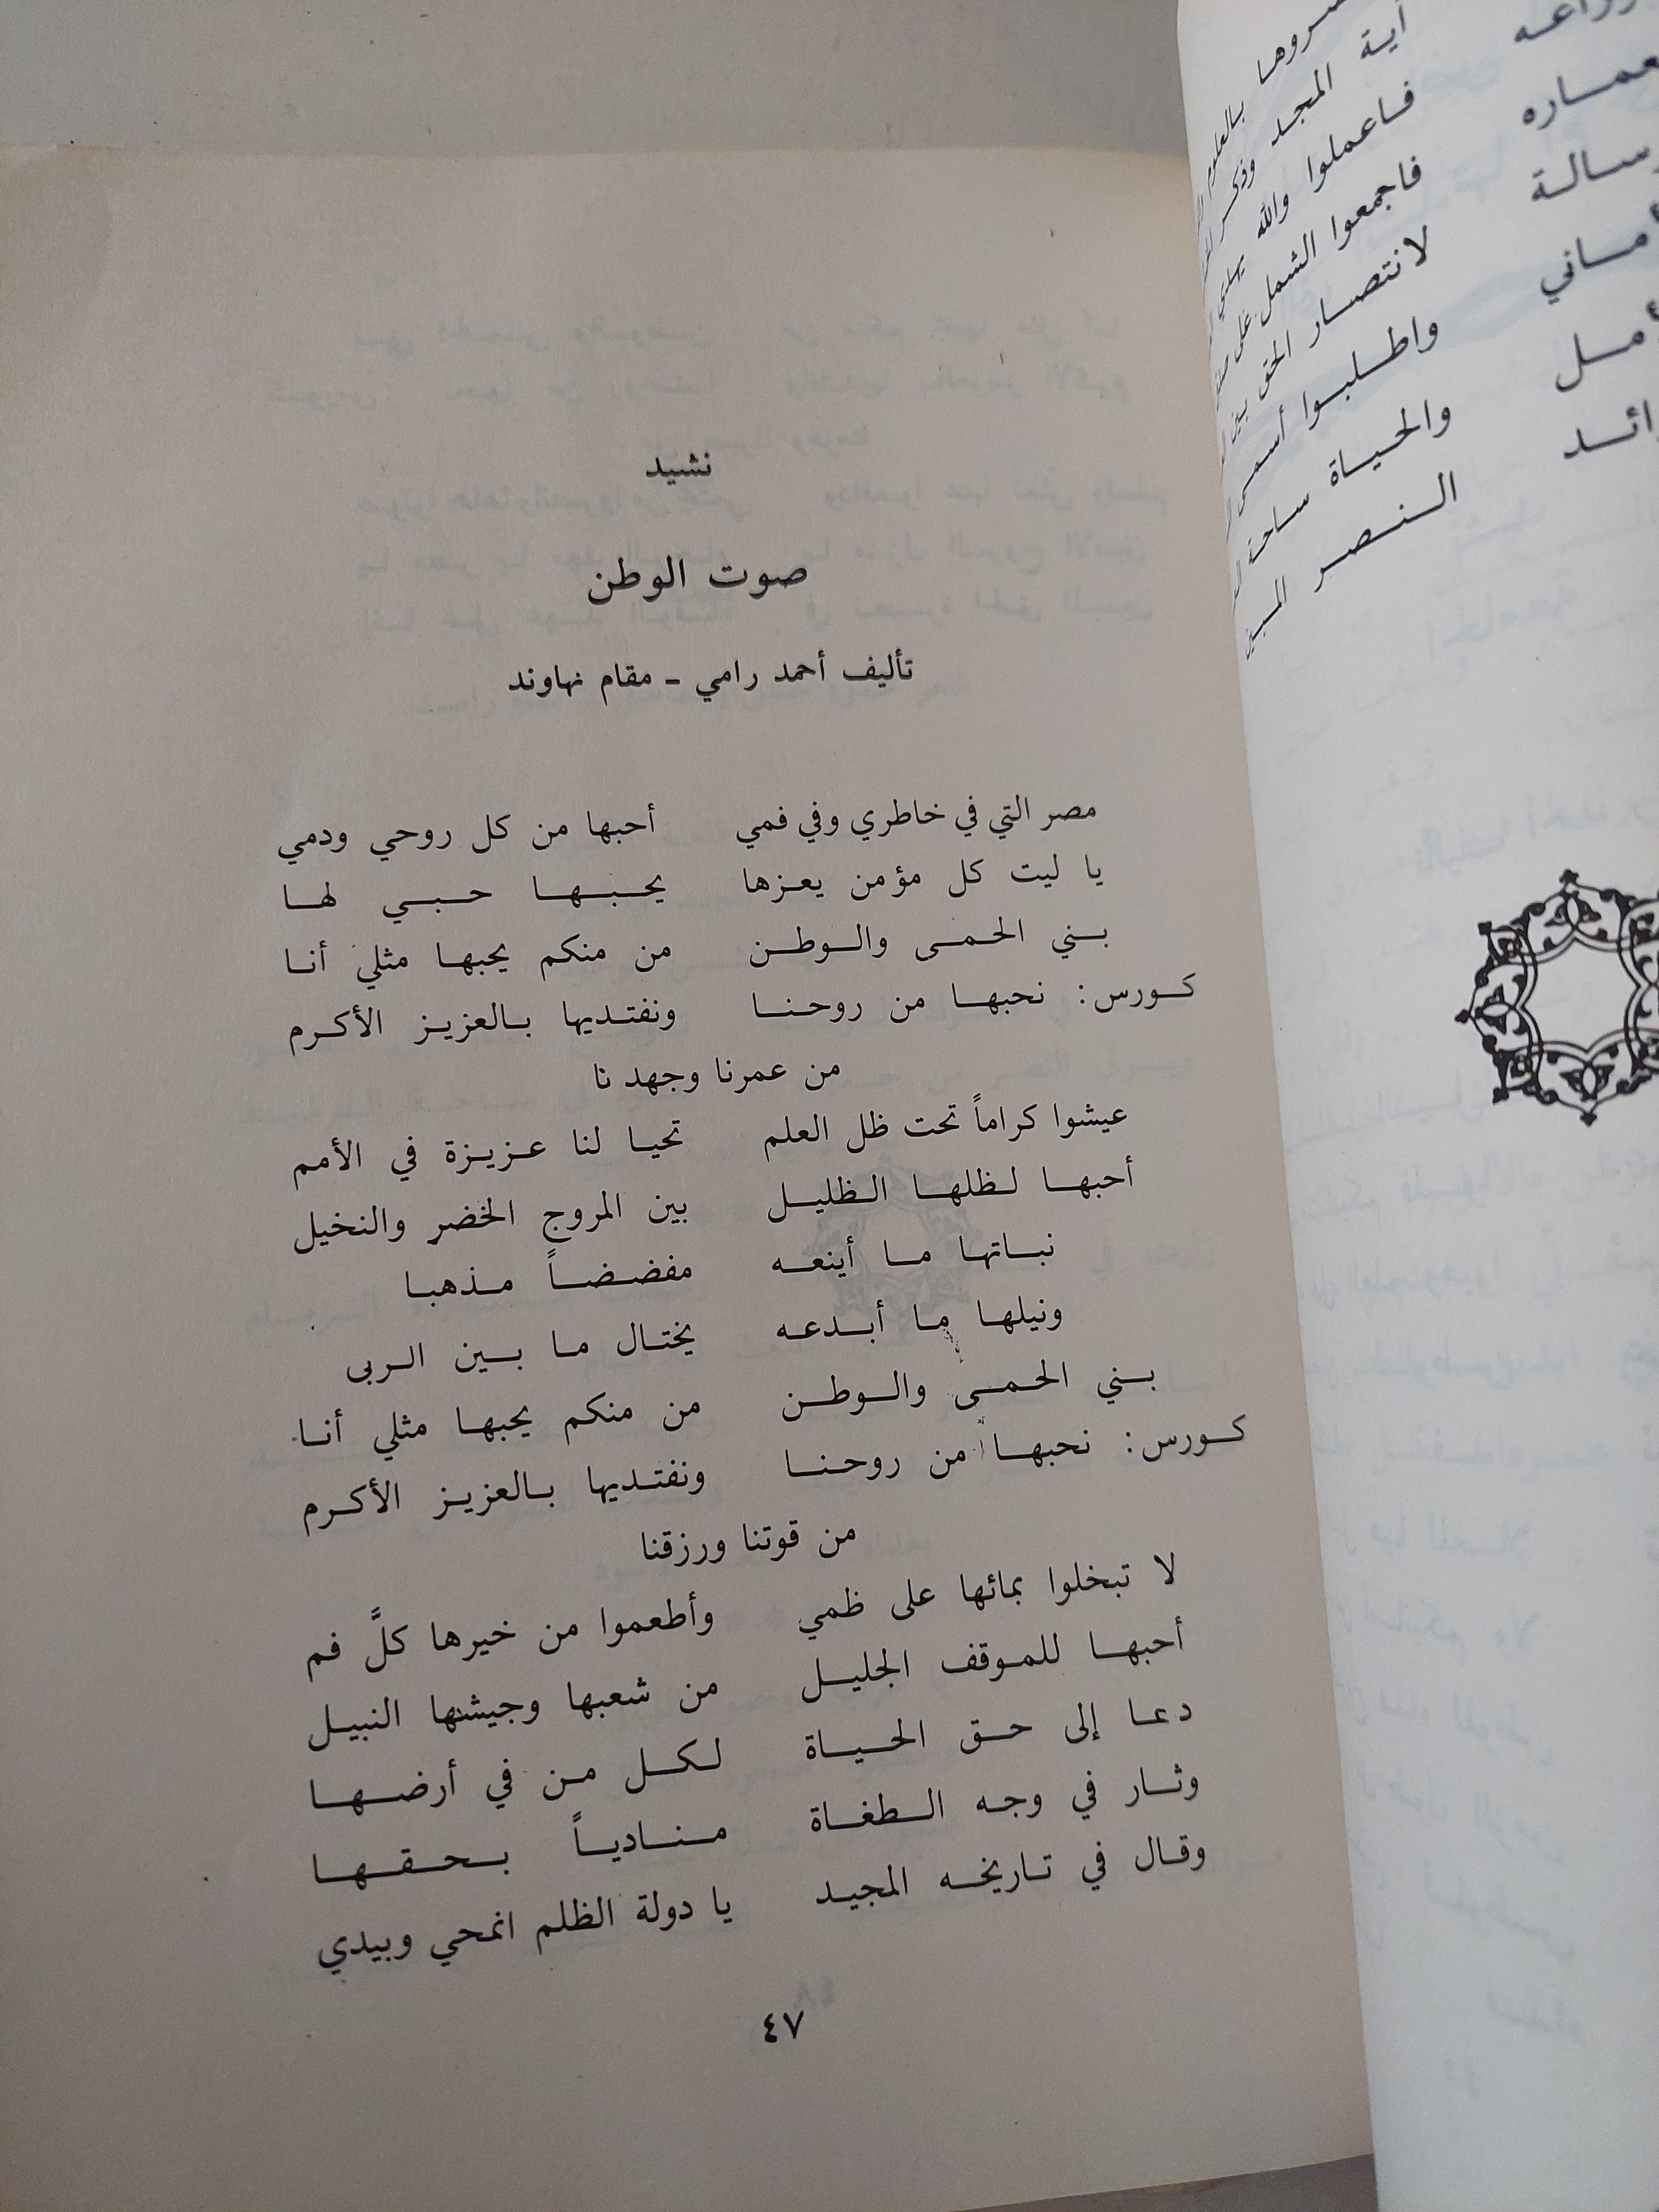 نشيد
صوت الوطن
تأليف أحمد رامي - مقام نهاوند
مصر التي في خاطري وفي فمي أحبها من كل روحي ودمي
يا ليت كل مؤمن يعزها يحبها حبي لها
بني الحمى والوطن من منكم يحبها مثلي أنا
كورس: نحبها من روحنا ونفتديها بالعزيز الأكرم
من عمرنا وجهد نا
عيشوا كراماً تحت ظل العلم تحيا لنا عزيزة في الأمم
أحبها لظلها الظليل بين المروج الخضر والنخيل
نباتها ما أينعه مفضضاً مذهبا
ونيلها ما أبدعه يختال ما بين الربى
بني الحمى والوطن من منكم يحبها مثلي أنا
كورس: نحبها من روحنا ونفتديها بالعزيز الأكرم
من قوتنا ورزقنا
لا تبخلوا بمائها على ظمي وأطعموا من خيرها كلَّ فم
أحبها للموقف الجليل من شعبها وجيشها النبيل
دعا إلى حق الحياة لكل من في أرضها
وثار في وجه الطغاة منادياً بحقها
وقال في تاريخه المجيد يا دولة الظلم انمحي وبيدي
٤٧
بالعلوم
آية المجد وذكر
فاعملوا والله يهدي
فاجمعوا الشمل على
لانتصار الحق بين
واطلبوا أسمى
والحياة ساحة
النصر المبين